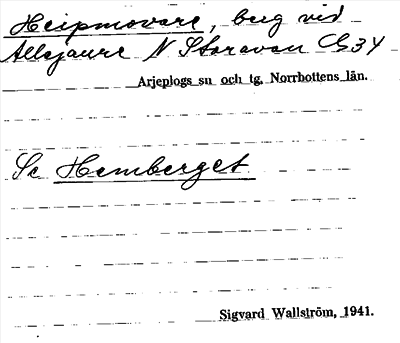 Heipmovare, berg vid
Allejaure N Storavan Gb34
Arjeplogs sn och tg, Norrbottens län.
Se Hemberget
Sigvard Wallström, 1941.